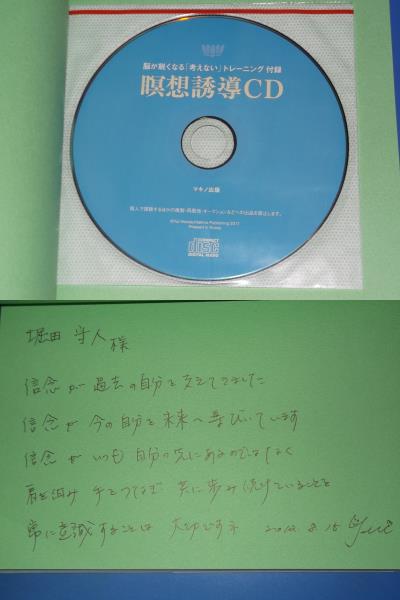 脳が鋭くなる「考えない」トレーニング 付録
瞑想誘導CD
マキノ出版
個人で課題するほかの複製・再配布・オークションなどへの出品を禁止します。
Makino Publishing 2011
COMPACT
disc
DIGITAL AUDIO
堀田 守人 様
信念が 過去の自分を支えてきました
信念が 今の自分を未来へ導びいています
信念が いつも 自分の先にあるのではなく
肩を組み 手をつなぎ 共に歩み続けていることを
常に意識することは 大切ですネ 2012. 8. 15